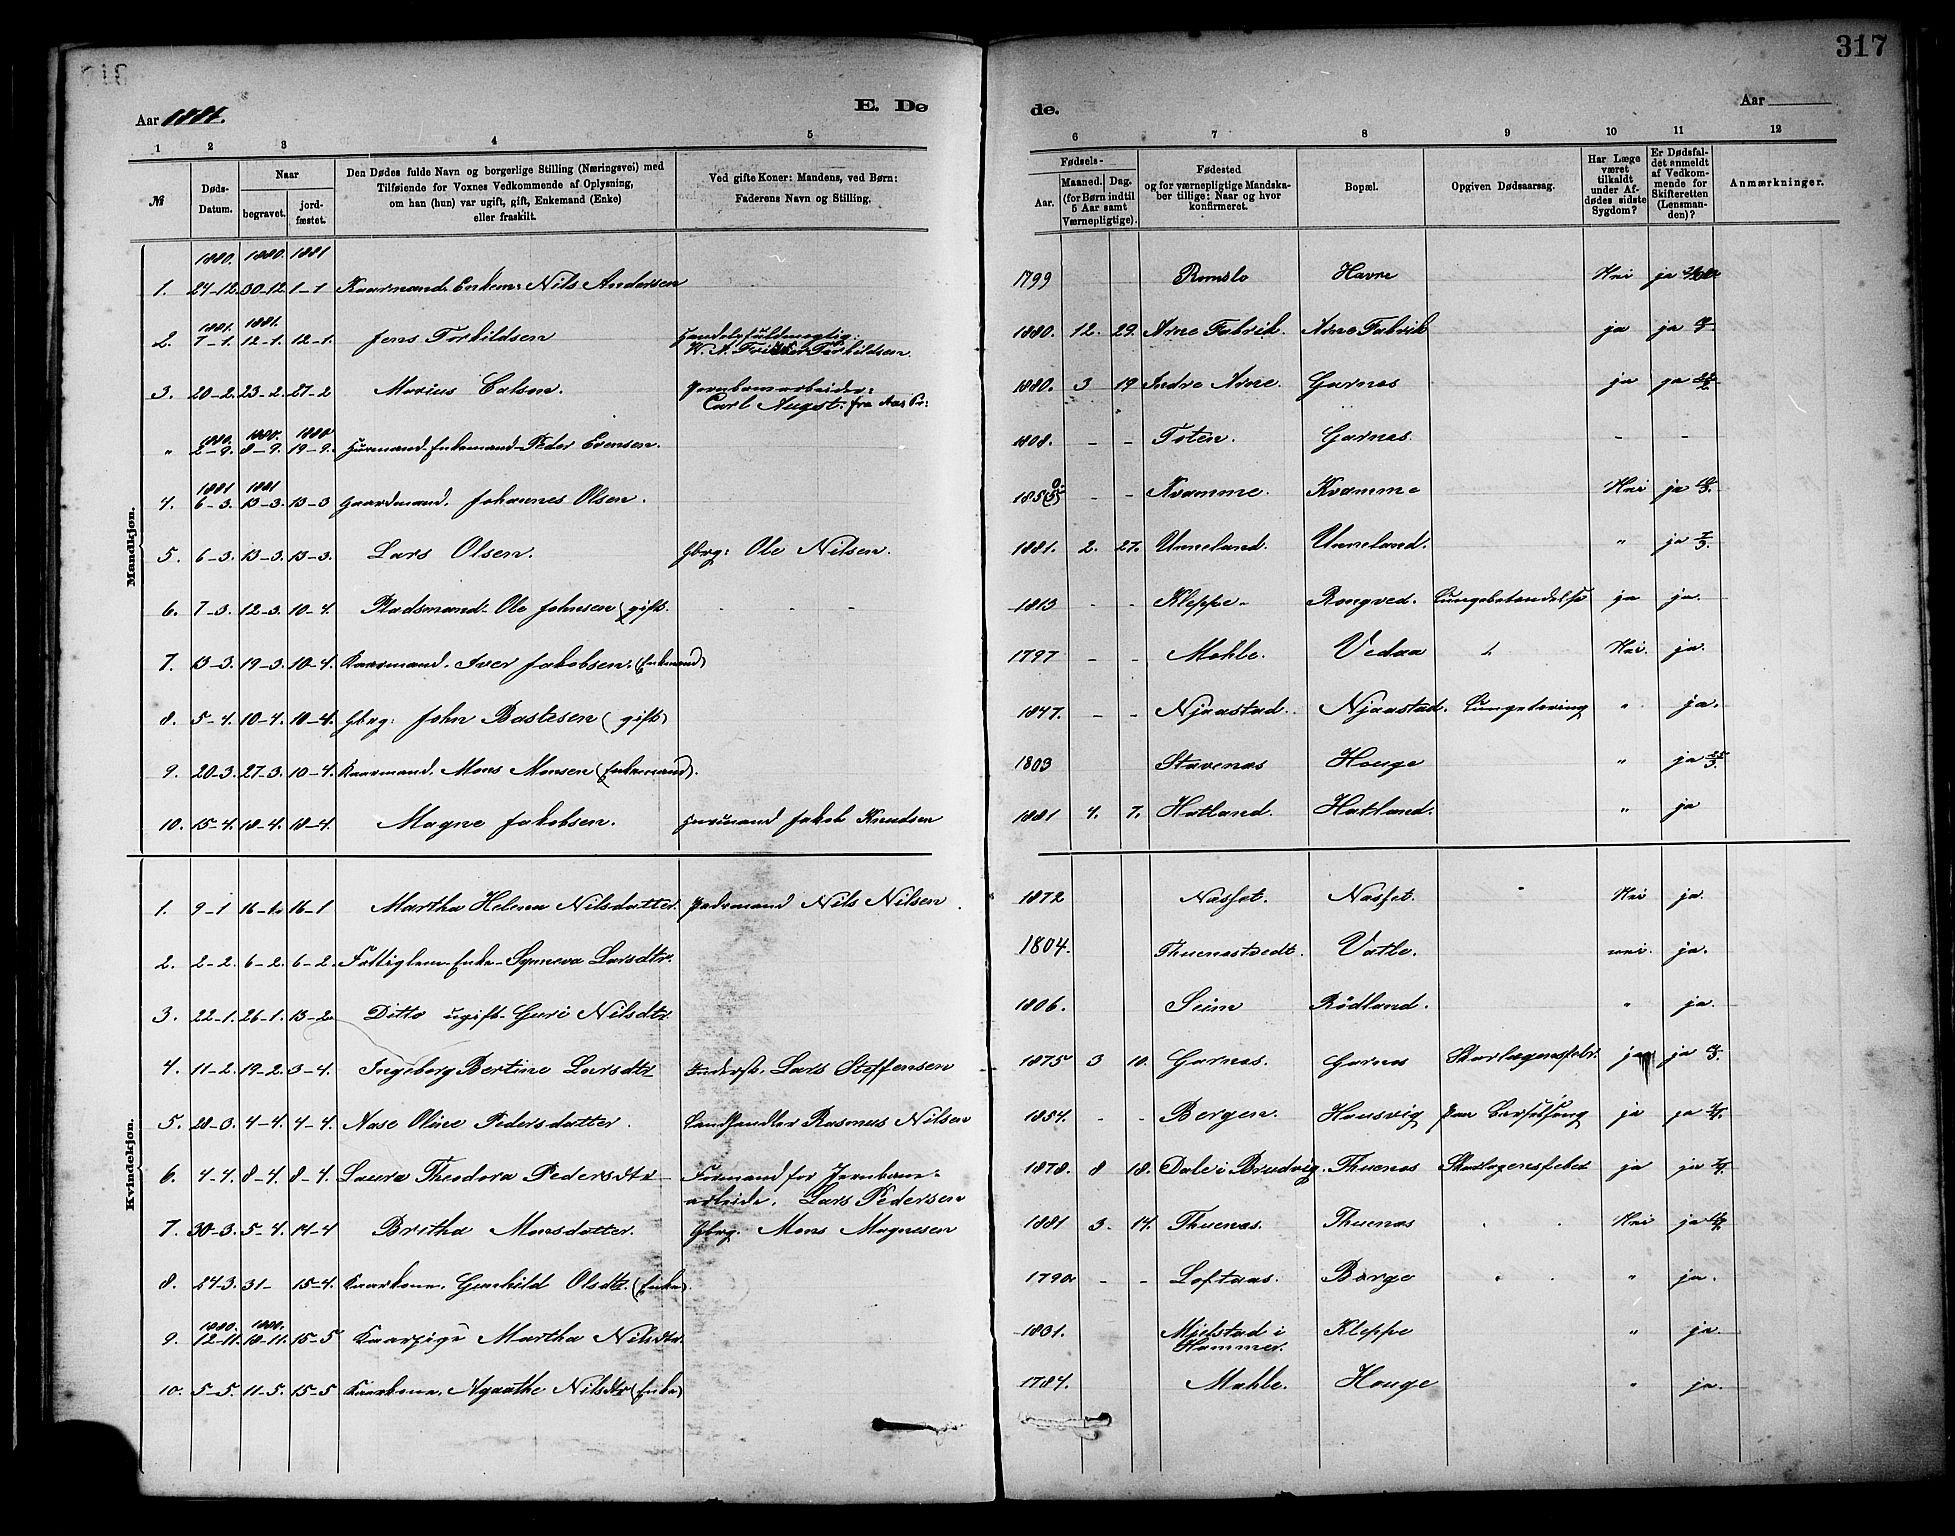 317
Aar 1881. E. Dø de. Aar
1 2 3 4 5 6 7 8 9 10 11 12
№ Døds-Datum. Naar begravet. jord-fæstet. Den Dødes fulde Navn og borgerlige Stilling (Næringsvei) med Tilføiende for Voxnes Vedkommende af Oplysning, om han (hun) var ugift, gift, Enkemand (Enke) eller fraskilt. Ved gifte Koner: Mandens, ved Børn: Faderens Navn og Stilling. Fødsels- Aar. Maaned. Dag. (for Børn indtil 5 Aar samt Værnepligtige). Fødested og for værnepligtige Mandska-ber tillige: Naar og hvor konfirmeret. Bopæl. Opgiven Dødsaarsag. Har Læge været tilkaldt under Af-dødes sidste Sygdom? Er Dødsfal-det anmeldt af Vedkom-mende for Skifteretten (Lensman-den)? Anmærkninger.
Mandkjøn.
1880. 1880. 1881
1. 24-12. 30-12. 1-1 Kaarmand. Enkem: Nils Andersen 1799 Romslo Havre Nei ja
1881. 1881.
2. 7-1. 12-1. 12-1. Jens Torkildsen Handelsfuldmægtig: W. A. Torkildsen 1880. 12. 29. Arne Fabrik. Arne Fabrik ja ja
3. 20-2. 23-2. 27-2 Marius Calsen. Jernbanearbeider: Carl Augst: fra 1880. 3 19 Indre Arne. Garnæs ja ja
1880. 1880. 1880
" 2-9. 8-9. 19-9. Huusmand. Enkemand Peder Evensen. 1808. - - Toten. Garnæs. - -
1881 1881
4. 6-3. 13-3. 13-3 Gaardmand. Johannes Olsen. 185 - - Kvamme. Kvamme Nei ja
5. 6-3. 13-3. 13-3. Lars Olsen. Gbrg: Ole Nilsen. 1881. 2. 27. Unneland. Unneland. " ja 7/3.
6. 7-3. 12-3. 10-4. Pladsmand: Ole Johnsen (gift. - - - 1813 - - Kleppe. Rongved. Lungebetændelse ja ja.
7. 13-3. 19-3. 10-4. Kaarmand. Iver Jakobsen. (Enkemand) 1797 - - Mehle. Vedaa Nei. ja.
8. 5-4. 10-4. 10-4. Gbrg: John Bastesen (gift) 1847. - - Njaastad. Njaastad. Lungetæring " ja.
9. 20-3. 27-3. 10-4. Kaarmand. Mons Monsen (Enkemand). 1803 Stavenæs Houge " ja 25/3.
10. 15-4. 18-4. 18-4. Magne Jakobsen. Huusmand Jakob Knudsen 1881 4. 7. Hatland. Hatland. " ja
Kvindekjøn.
1. 9-1 16-1. 16-1 Martha Helena Nilsdatter. Pladsmand Nils Nilsen 1872 Næsset. Næsset. Nei ja.
2. 2-2. 6-2. 6-2. Fattiglem-Enke-Synneva Larsdtr. 1804. Thuenæstvedt. Vatle. nei. ja.
3. 22-1. 26-1. 13-2. Ditto ugift-Guri Nilsdtr. 1806. Seim Rödland. " ja.
4. 11-2. 19-2. 3-4. Ingeborg Bertine Larsdtr Lars Steffensen 1875 3 10. Garnæs. Garnæs Skarlagensfebr. ja ja
5. 28-3. 4-4. 4-4. Aase Oline Pedersdatter. Landhandler Rasmus Nilsen 1854. - - Bergen. Hausvig Paa Barselseng ja ja
6. 4-4. 8-4. 8-4. Laura Theodora Pedersdtr Formand for Jernbane-arbeide. Lars Pedersen 1878. 8 18. Dale i Brudvig. Thuenæs Skarlagensfeber ja ja
7. 30-3. 5-4. 14-4 Britha Monsdatter. Gbrg. Mons Magnesen 1881 3. 14. Thuenæs. Thuenæs Nei ja
8. 24-3. 31- 15-4. Kaarkone. Gunhild Olsdtr. (Enke). 1790. - - Loftaas. Borge " ja.
1880. 1880.
9. 12-11. 18-11. 15-5 Kaarpige Martha Nilsdtr. 1831. Mjelstad i Hammer. Kleppe " ja.
10. 5-5. 11-5. 15-5 Kaarkone. Agaathe Nilsdtr (Enke) 1784. Mehle. Houge " ja.